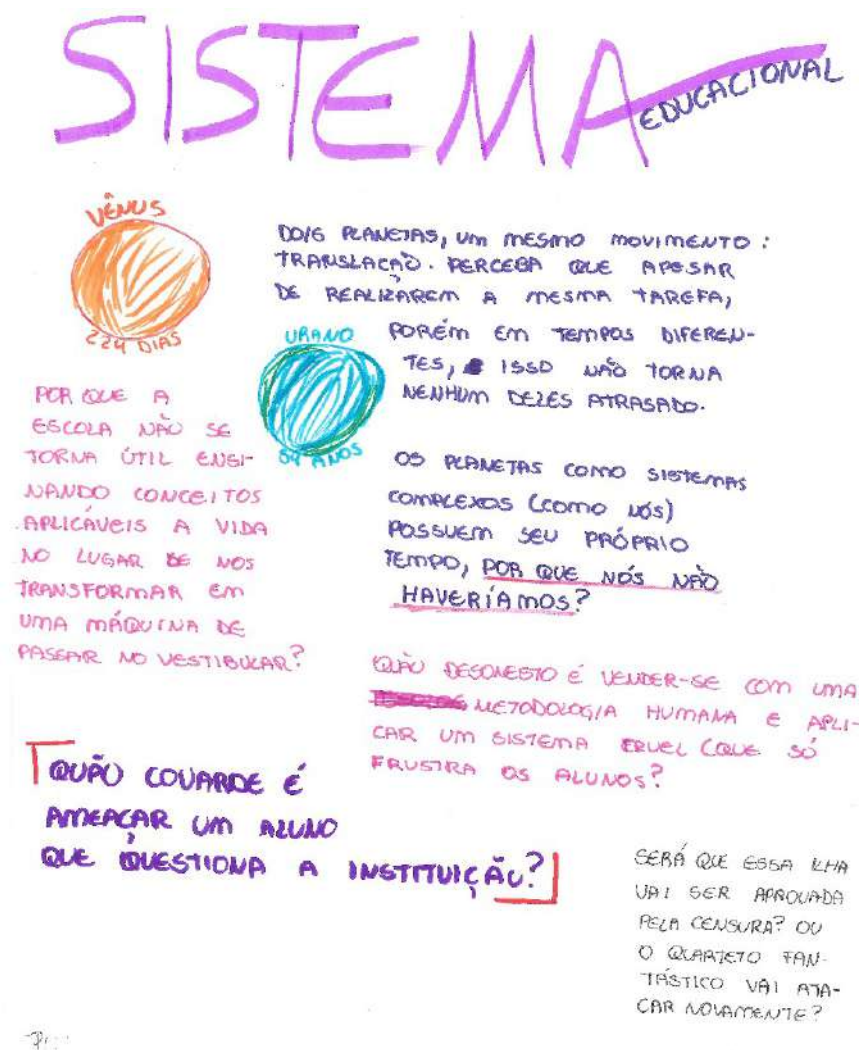 SISTEMA
EDUCACIONAL
VÊNUS
224 DIAS
DOIS PLANETAS, UM MESMO MOVIMENTO:
TRANSLAÇÃO. PERCEBA QUE APESAR
DE REALIZAREM A MESMA TAREFA,
PORÉM EM TEMPOS DIFEREN-
TES, ISSO NÃO TORNA
NENHUM DELES ATRASADO.
URANO
84 ANOS
OS PLANETAS COMO SISTEMAS
COMPLEXOS (COMO NÓS)
POSSUEM SEU PRÓPRIO
TEMPO, POR QUE NÓS NÃO
HAVERÍAMOS?
POR QUE A
ESCOLA NÃO SE
TORNA ÚTIL ENSI-
NANDO CONCEITOS
APLICÁVEIS A VIDA
NO LUGAR DE NOS
TRANSFORMAR EM
UMA MÁQUINA DE
PASSAR NO VESTIBULAR?
QUÃO DESONESTO É VENDER-SE COM UMA
METODOLOGIA HUMANA E APLI-
CAR UM SISTEMA CRUEL (QUE SÓ
FRUSTRA OS ALUNOS?
QUÃO COVARDE É
AMEAÇAR UM ALUNO
QUE QUESTIONA A INSTITUIÇÃO?
SERÁ QUE ESSA ILHA
VAI SER APROVADA
PELA CENSURA? OU
O QUARTETO FAN-
TÁSTICO VAI ATA-
CAR NOVAMENTE?